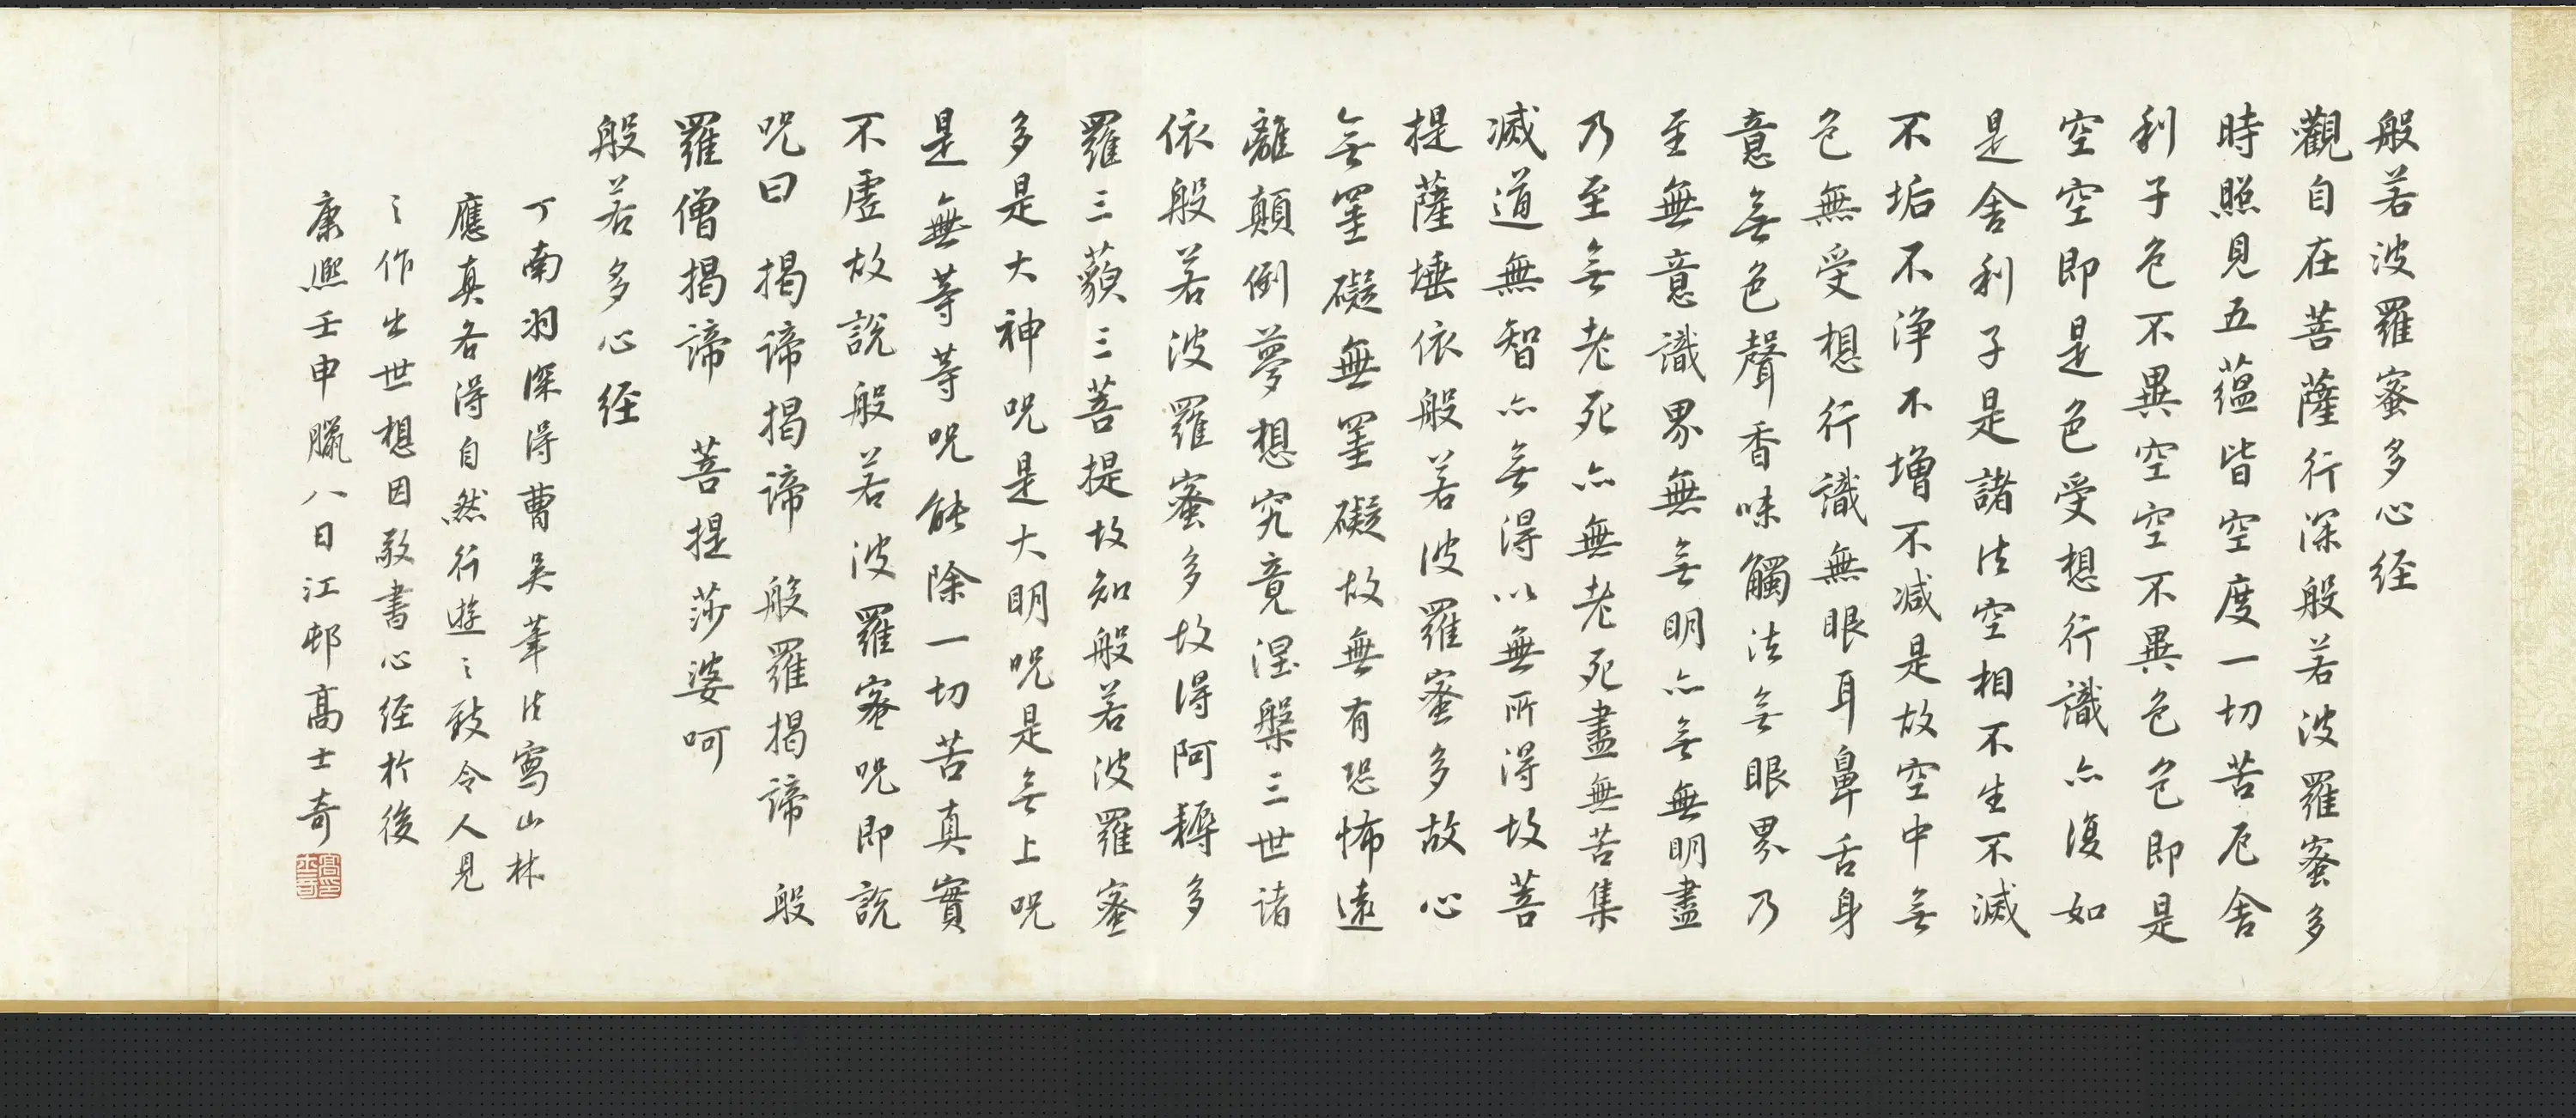 般若波羅蜜多心经
觀自在菩薩行深般若波羅蜜多
時照見五蘊皆空度一切苦厄舍
利子色不異空空不異色色即是
空空即是色受想行識亦復如
是舍利子是諸法空相不生不滅
不垢不淨不增不減是故空中無
色無受想行識無眼耳鼻舌身
意無色聲香味觸法無眼界乃
至無意識界無無明亦無無明盡
乃至無老死亦無老死盡無苦集
滅道無智亦無得以無所得故菩
提薩埵依般若波羅蜜多故心
無罣礙無罣礙故無有恐怖遠
離顛倒夢想究竟涅槃三世諸
依般若波羅蜜多故得阿耨多
羅三藐三菩提故知般若波羅蜜
多是大神咒是大明咒是無上咒
是無等等咒能除一切苦真實
不虛故說般若波羅蜜咒即說
咒曰 揭諦揭諦 般羅揭諦 般
羅僧揭諦 菩提莎婆呵
般若多心经
丁南羽深得曹吳筆法寫山林
應真各得自然行遊之致令人見
之作出世想因敬書心经於後
康熙壬申臘八日江邨高士奇
高士奇印